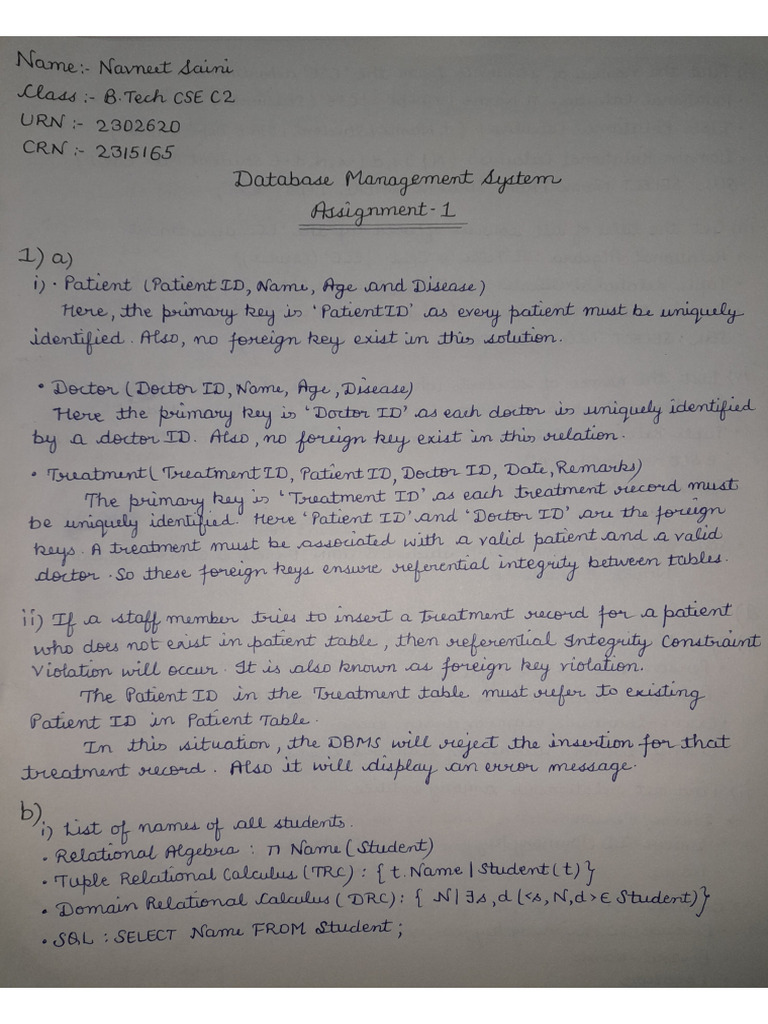 Name:- Navneet Saini
Class:- B.Tech CSE C2
URN:- 2302620
CRN:- 2315165
Database Management System
Assignment-1
1) a)
i) • Patient (Patient ID, Name, Age and Disease)
Here, the primary key is 'Patient ID' as every patient must be uniquely
identified. Also, no foreign key exist in this solution.
• Doctor (Doctor ID, Name, Age, Disease)
Here the primary key is 'Doctor ID' as each doctor is uniquely identified
by a doctor ID. Also, no foreign key exist in this relation.
• Treatment (Treatment ID, Patient ID, Doctor ID, Date, Remarks)
The primary key is 'Treatment ID' as each treatment record must
be uniquely identified. Here 'Patient ID' and 'Doctor ID' are the foreign
keys. A treatment must be associated with a valid patient and a valid
doctor. So these foreign keys ensure referential integrity between tables.
ii) If a staff member tries to insert a treatment record for a patient
who does not exist in patient table, then referential Integrity Constraint
Violation will occur. It is also known as foreign key violation.
The Patient ID in the Treatment table must refer to existing
Patient ID in Patient Table.
In this situation, the DBMS will reject the insertion for that
treatment record. Also it will display an error message.
b)
i) List of names of all students.
• Relational Algebra : π Name (Student)
• Tuple Relational Calculus (TRC) : { t.Name | Student (t) }
• Domain Relational Calculus (DRC) : { N | ∃s, d (<s, N, d> ∈ Student) }
• SQL : SELECT Name FROM Student ;